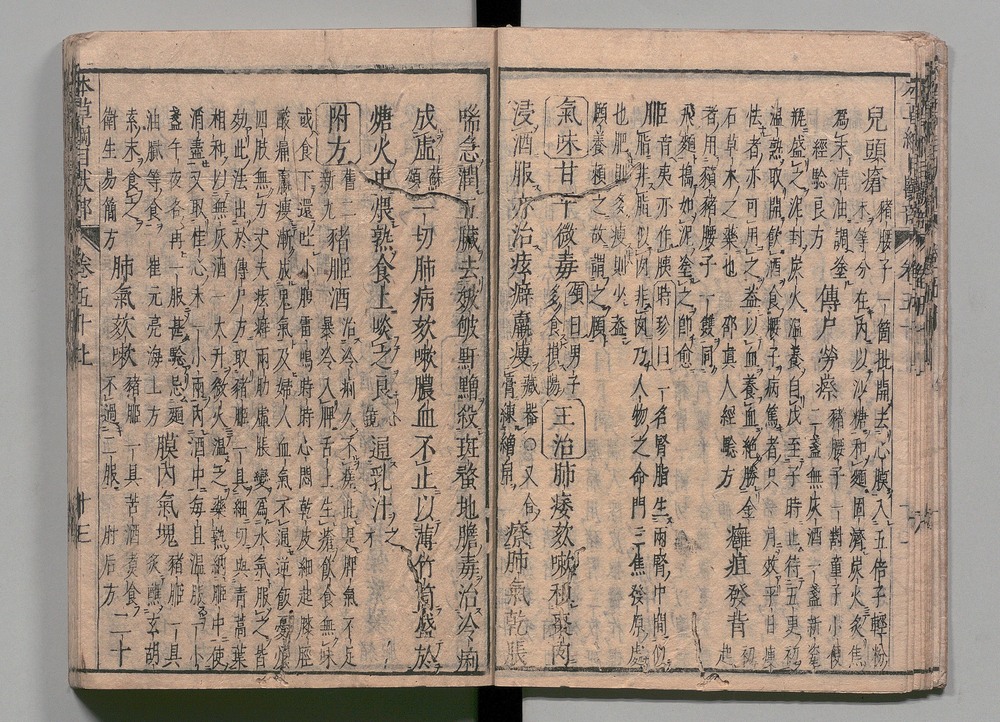 兒頭瘡 豬腰子一箇批開去心膜入五倍子輕粉
等分在內以沙糖和麵固濟炭火炙焦
為末清油調塗
經驗良方 傳尸勞瘵 豬腰子一對童子小便
二盞無灰酒一盞新瓷
瓶盛之泥封炭火溫養自戌至子時止待五更初
溫熟取開飲酒食腰子病篤者只一月效平日瘦
怯者亦可用之蓋以血養血絕勝金
石草木之藥也 邵真人經驗方 癰疽發背 初起
者用豶豬腰子一雙同
飛麵搗如泥塗之即愈
胰 音夷亦作䐅 時珍曰 一名腎脂生兩腎中間似
脂非脂似肉非肉乃人物之命門三焦發原處
也肥則多瘦則少蓋
頤養賴之故謂之頤
氣味甘平微毒 頌曰男子多食損陽 主治肺痿欬嗽和棗肉
浸酒服亦治痃癖羸瘦 藏器○又合膏練繒帛 療肺氣乾脹
喘急潤五臟去皴皰䵟䵳殺斑蝥地膽毒治冷痢
成虛 蘇頌 一切肺病欬嗽膿血不止以薄竹筒盛於
煻火中煨熟食上啖之良 通乳汁 之才
附方 舊二新九 豬胰酒 治冷痢久不瘥此是脾氣不足
暴冷入脾舌上生瘡飲食無味
或食下還吐小腹雷鳴時時心悶乾皮細起膝脛
酸痛羸瘦漸成鬼氣及婦人血氣不通逆飯憂煩
四肢無力丈夫痃癖兩肋虛脹變為水氣服之皆
効此法出於傳尸方取豬胰一具細切與青蒿葉
相和以無灰酒一大升微火溫之乘熱納胰中使
消盡又取桂心末一小兩內酒中每旦溫服一小
盞午夜各再一服甚驗忌麵
油膩等食 崔元亮海上方 膜內氣塊 豬胰一具
炙蘸玄胡
索末食之
衛生易簡方 肺氣欬嗽 豬胰一具苦酒煮食
不過二服 肘后方 二十
本草綱目獸部 卷五十上 十三